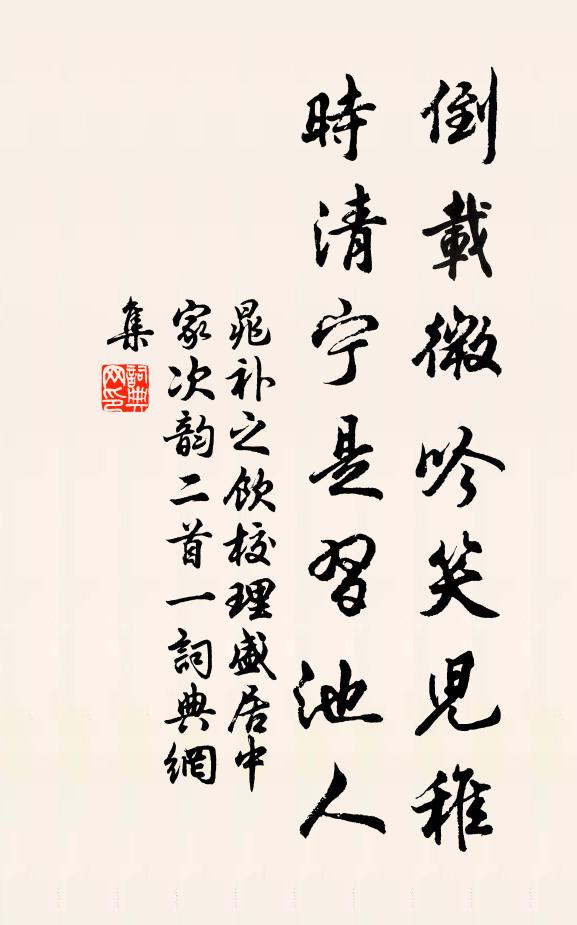 倒載微吟笑兒稚
時清宁是習池人
晁补之飲校理盛居中
家次韵二首一詞典網
集
詞典
网印